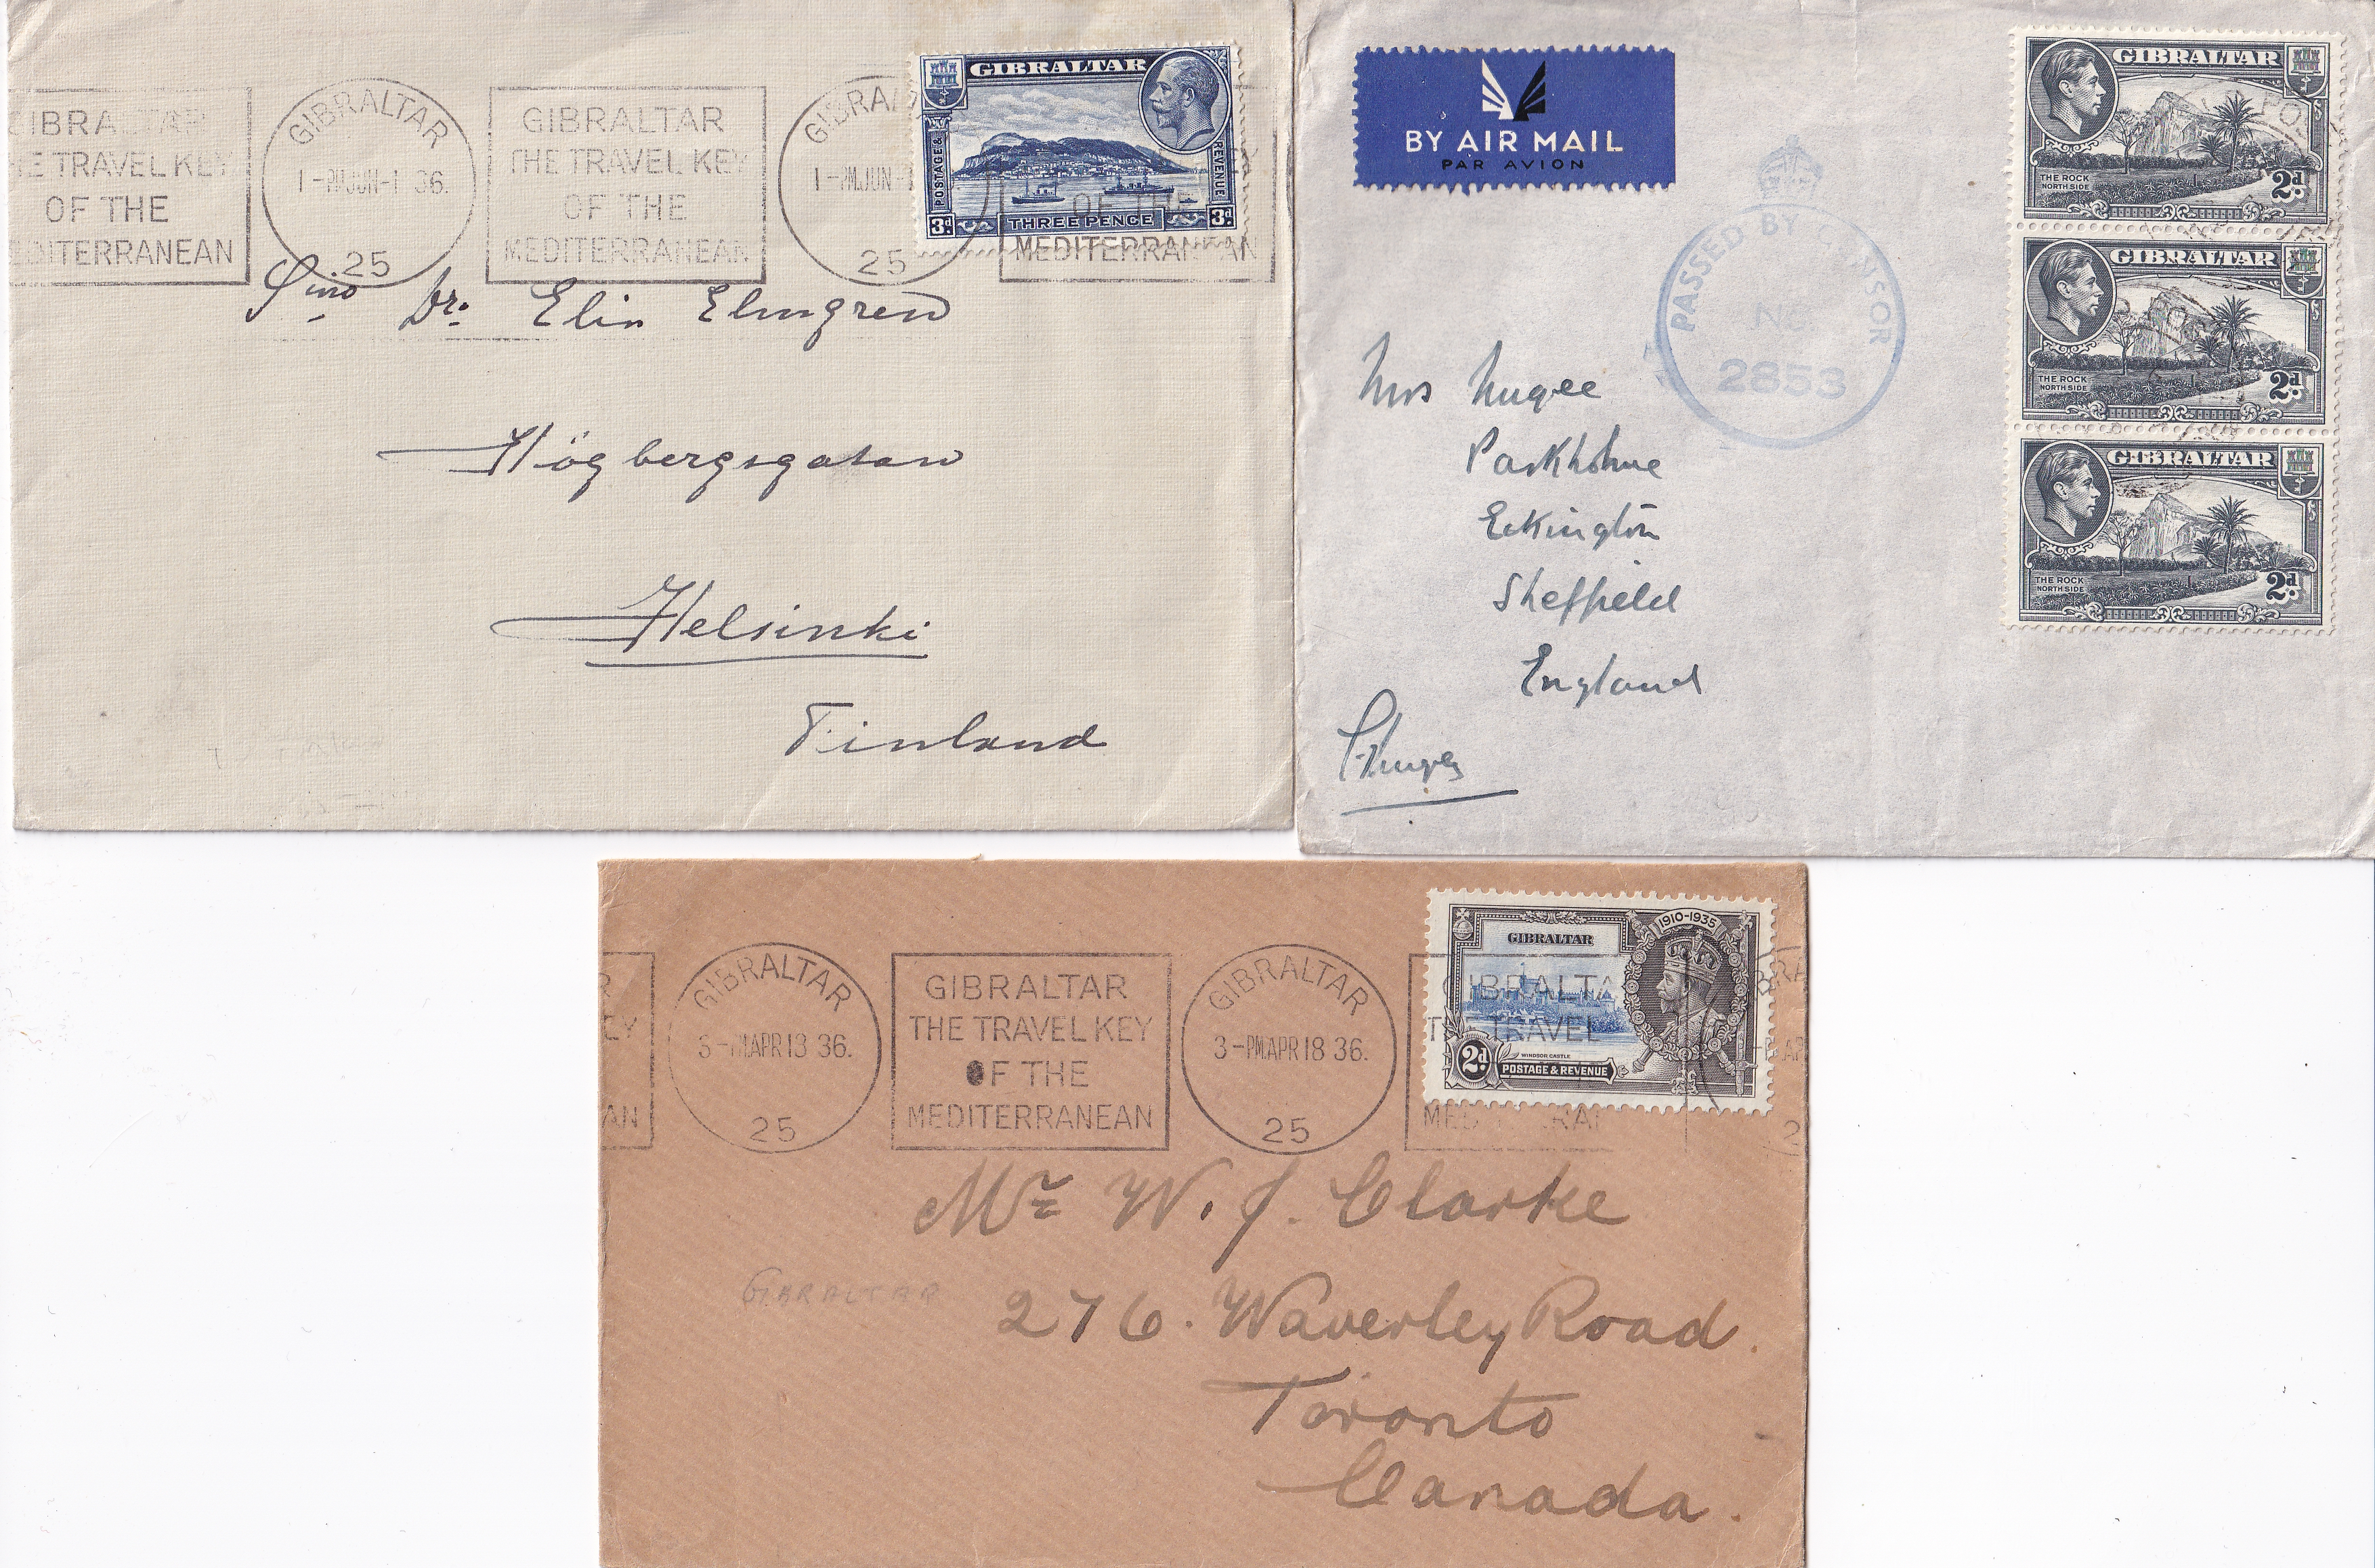 GIBRALTAR
THE TRAVEL KEY
OF THE
MEDITERRANEAN
GIBRALTAR
1-PM.JUN-1 36.
25
GIBRALTAR
THE TRAVEL KEY
OF THE
MEDITERRANEAN
GIBRA
1-PM.JUN-
25
OF THE
MEDITERRANEAN
GIBRALTAR
POSTAGE &
REVENUE
3d THREE PENCE 3d
Dr. Elin Elmgren
Högbergsgatan
Helsinki
Finland
BY AIR MAIL
PAR AVION
PASSED BY CENSOR
No
2853
GIBRALTAR
THE ROCK
NORTH SIDE
2d
GIBRALTAR
THE ROCK
NORTH SIDE
2d
GIBRALTAR
THE ROCK
NORTH SIDE
2d
Mrs Nugee
Parkholme
Eckington
Sheffield
England
R
EY
AN
GIBRALTAR
3-PM.APR 18 36.
25
GIBRALTAR
THE TRAVEL KEY
OF THE
MEDITERRANEAN
GIBRALTAR
3-PM.APR 18 36.
25
GIBRALTA
TRAVEL
1910-1935
GIBRALTAR
WINDSOR CASTLE
2d POSTAGE & REVENUE
Mr W. J. Clarke
GIBRALTAR
276. Waverley Road.
Toronto
Canada.